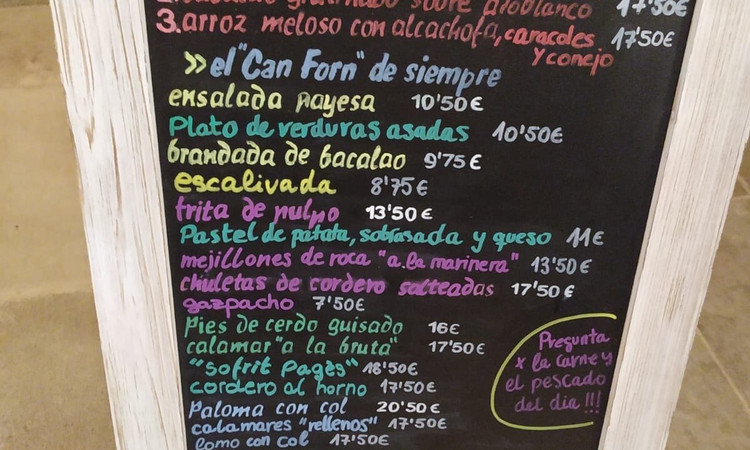 gratinado sobre 17'50€
3. arroz meloso con alcachofa, caracoles 17'50€
y conejo
>> el "Can Forn" de siempre
ensalada payesa 10'50€
Plato de verduras asadas 10'50€
brandada de bacalao 9'75€
escalivada 8'75€
frita de pulpo 13'50€
Pastel de patata, sobrasada y queso 11€
mejillones de roca "a la marinera" 13'50€
chuletas de cordero salteadas 17'50€
gazpacho 7'50€
Pies de cerdo guisado 16€
calamar "a la bruta" 17'50€
"Sofrit Pagès" 18'50€
cordero al horno 17'50€
Paloma con col 20'50€
calamares "rellenos" 17'50€
lomo con col 17'50€
Pregunta
x la carne y
el pescado
del dia!!!